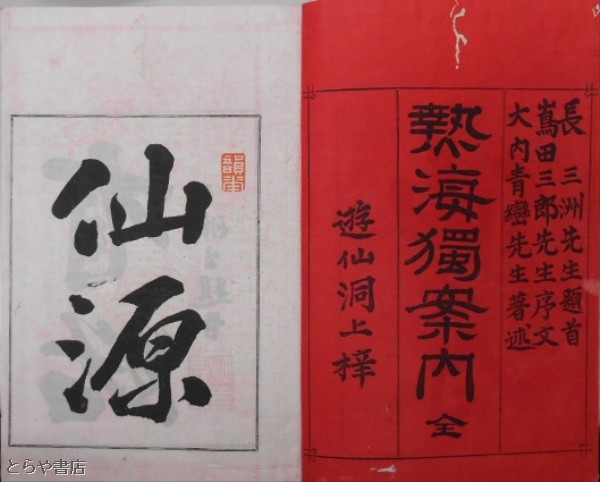 長三洲先生題首
嶌田三郎先生序文
大内青巒先生著述
熱海獨案内 全
遊仙洞上梓
仙源
とらや書店